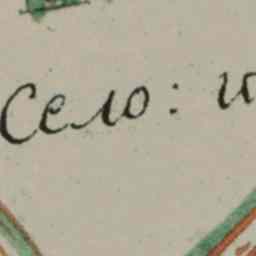 Село: и